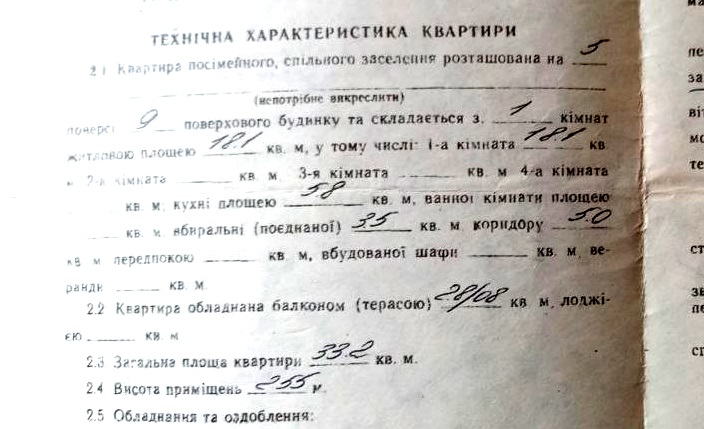 ТЕХНІЧНА ХАРАКТЕРИСТИКА КВАРТИРИ
2.1 Квартира посімейного, спільного заселення розташована на 5
(непотрібне викреслити)
поверсі 9 поверхового будинку та складається з. 1 кімнат
житловою площею 18.1 кв. м, у тому числі: 1-а кімната 18.1 кв
м 2-а кімната кв. м 3-я кімната кв. м 4-а кімната
кв. м, кухні площею 58 кв. м, ванної кімнати площею
кв. м. вбиральні (поєднаної) 35 кв. м коридору 5.0
кв м передпокою кв. м, вбудованої шафи кв. м, ве-
ранди кв. м.
2.2 Квартира обладнана балконом (терасою) 28/08 кв м, лоджі-
єю кв. м
2.3 Загальна площа квартири 33.2 кв. м.
2.4 Висота приміщень 255 м.
2.5 Обладнання та оздоблення: